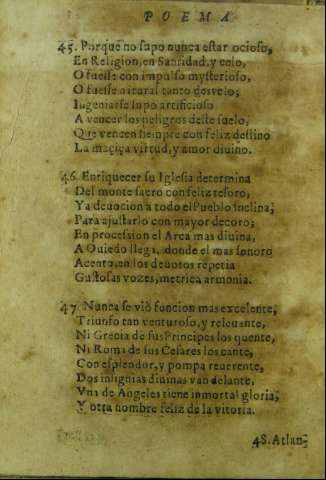 POEMA
45. Porque no supo nunca estar ocioso,
En Religion, en Santidad, y celo,
O fuesse con impulso mysterioso,
O fuesse natural tanto desvelo;
Ingeniarse supo artificioso
A vencer los peligros deste suelo,
Que vencen siempre con feliz destino
La maciça virtud, y amor diuino.
46. Enriquecer su Iglesia determina
Del monte sacro con feliz tesoro,
Ya deuocion a todo el Pueblo inclina;
Para ajustarlo con mayor decoro;
En procession el Arca mas diuina,
A Ouiedo llega, donde el mas sonoro
Acento, en los deuotos repetia
Gustosas vozes, metrica armonia.
47. Nunca se viò funcion mas excelente,
Triunfo tan venturoso, y releuante,
Ni Grecia de sus Principes los quente,
Ni Roma de sus Cesares los cante,
Con esplendor, y pompa reuerente,
Dos insignias diuinas van delante,
Vna de Angeles tiene inmortal gloria;
Y otra nombre feliz de la vitoria.
48. Atlan-